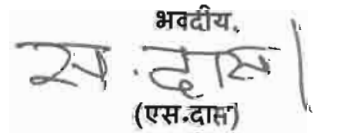 भवदीय,
स. दास
(एस.दास)